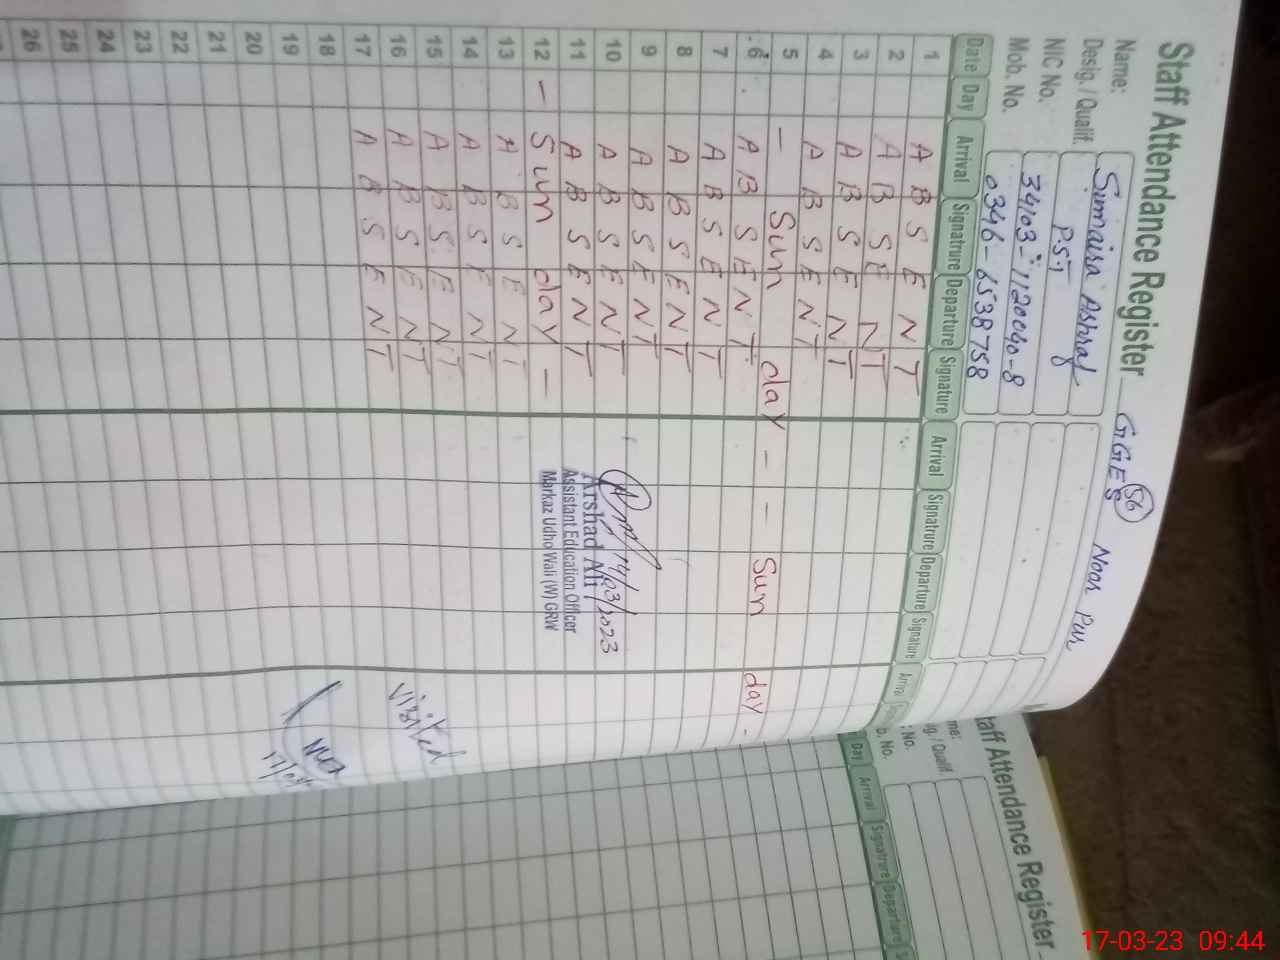 Staff Attendance Register GGES 56 Noor Pur
Name: Sumaira Ashraf
Desig. / Qualif. P.S.T
NIC No. 34103-1120040-8
Mob. No. 0346-6538758
Date Day Arrival Signatrure Departure Signature Arrival Signatrure Departure Signature Arrival
1 A B S E N T
2 A B S E N T
3 A B S E N T
4 A B S E N T
5 - Sun day - - Sun day -
6 A B S E N T
7 A B S E N T
8 A B S E N T
9 A B S E N T
10 A B S E N T
11 A B S E N T
12 - Sun day -
13 A B S E N T
14 A B S E N T
15 A B S E N T
16 A B S E N T
17 A B S E N T
18
19
20
21
22
23
24
25
26
14/03/2023
Arshad Ali
Assistant Education Officer
Markaz Udho Wali (W) GRW
visited
taff Attendance Register
me:
ig. / Qualif.
No.
b. No.
Day Arrival Signatrure Departure
17-03-23 09:44